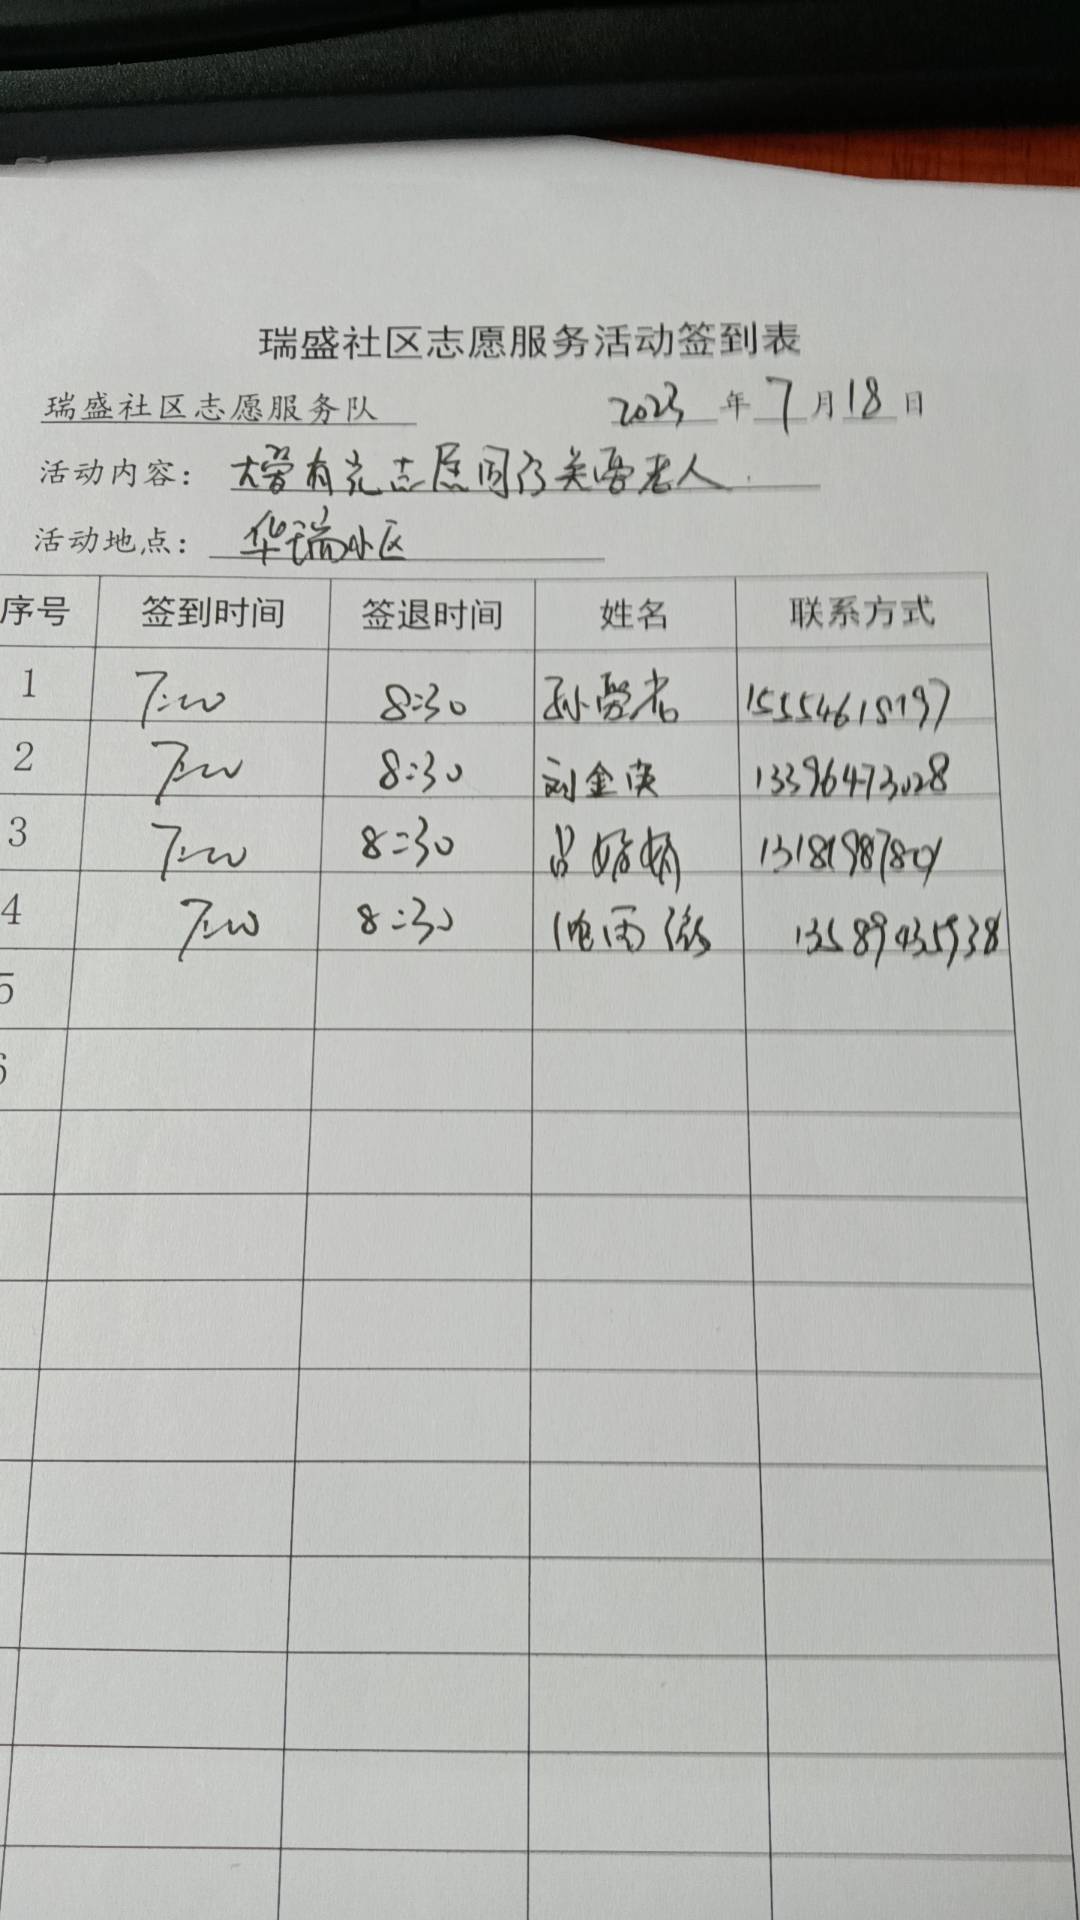 瑞盛社区志愿服务活动签到表
瑞盛社区志愿服务队 2023 年 7 月 18 日
活动内容: 志愿 关爱老人
活动地点: 华瑞小区
序号 签到时间 签退时间 姓名 联系方式
1 7:00 8:30 孙
2 7:00 8:30 刘金 13396473028
3 7:00 8:30 吕 13181987801
4 7:00 8:30 雨 13589435938
5
6